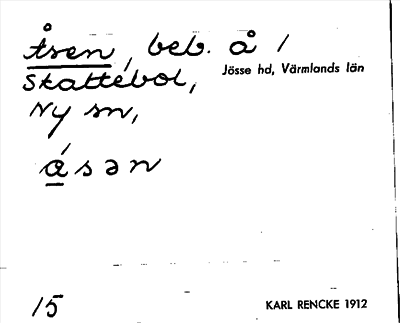 Åsen, beb. å /
Skattebol, Jösse hd, Värmlands län
Ny sn,
ǻsən
15
KARL RENCKE 1912